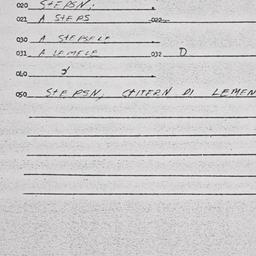 020 STEPSN,
021 A STEPS 022
030 A STEPSELE
031 A LEMELE 032 D
040
050 STEPSN, CHITERN DI LEMEN